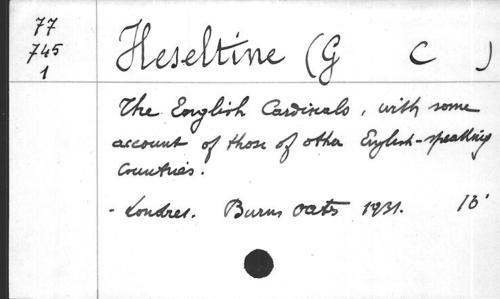 77
745
1
Heseltine (G C )
The English Cardinals, with some
account of those of other English-speaking
Countries.
- Londres. Burns Oates 1931.